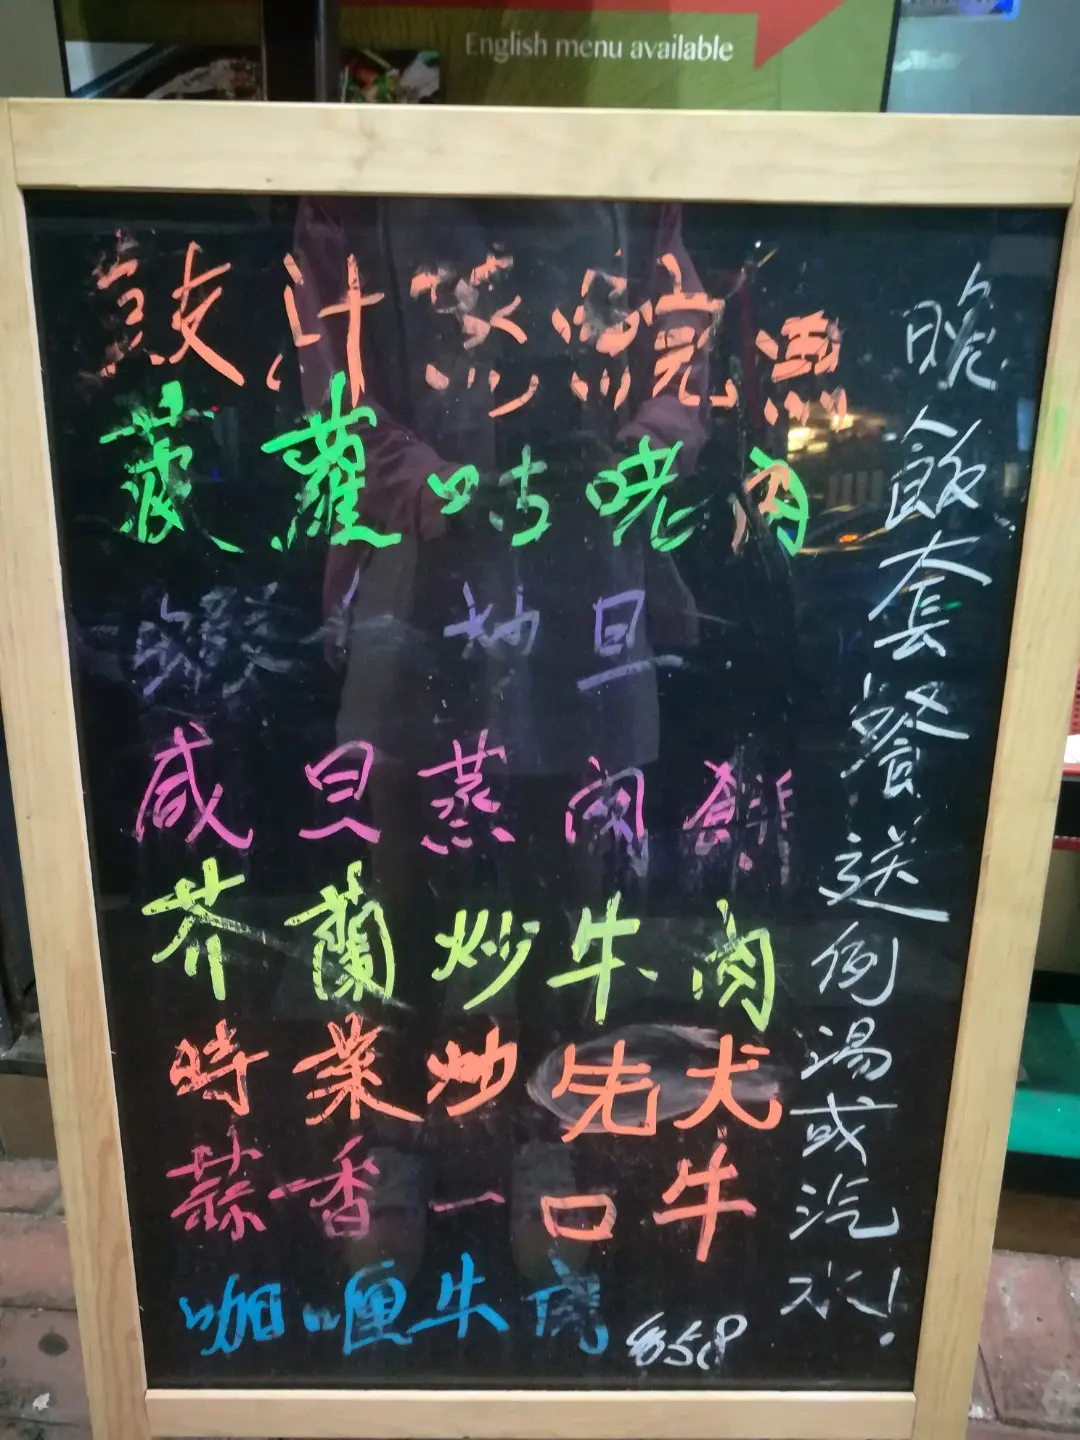 English menu available
豉汁蒸鯇魚
菠蘿咕咾肉
蝦 炒旦
咸旦蒸肉餅
芥蘭炒牛肉
時菜炒先犬
蒜香一口牛
咖喱牛肉
晚飯套餐送例湯或汽水!